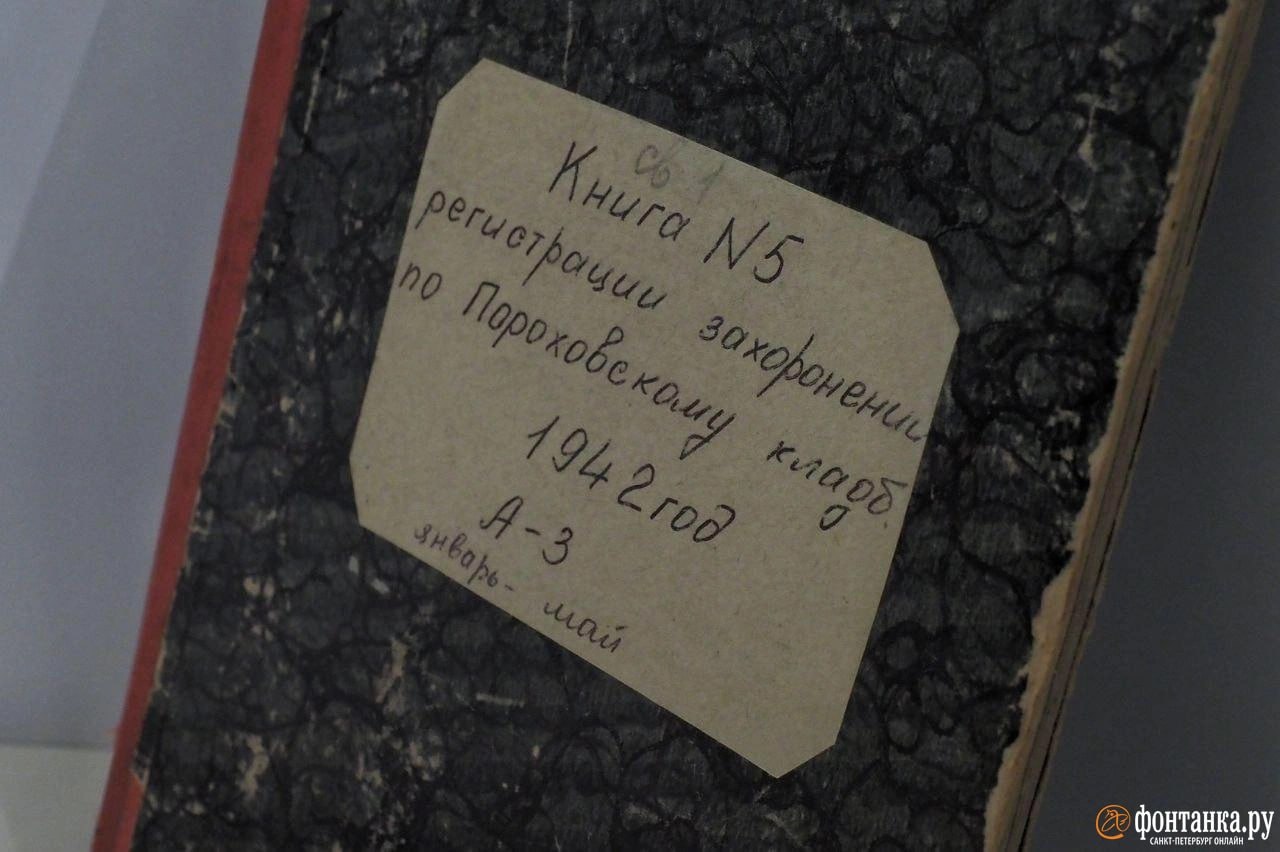 Книга N5
регистрации захоронении
по Пороховскому кладб.
1942 год
А-З
январь- май
фонтанка.ру
САНКТ-ПЕТЕРБУРГ ОНЛАЙН